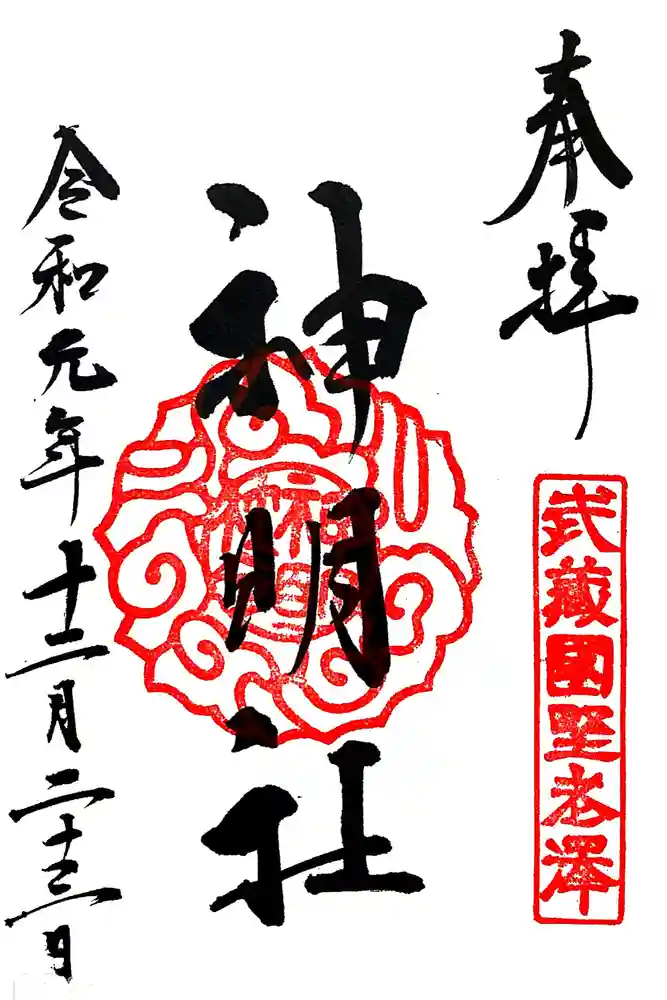 奉拝
武藏國埜老澤
神明社
令和元年十二月二十三日